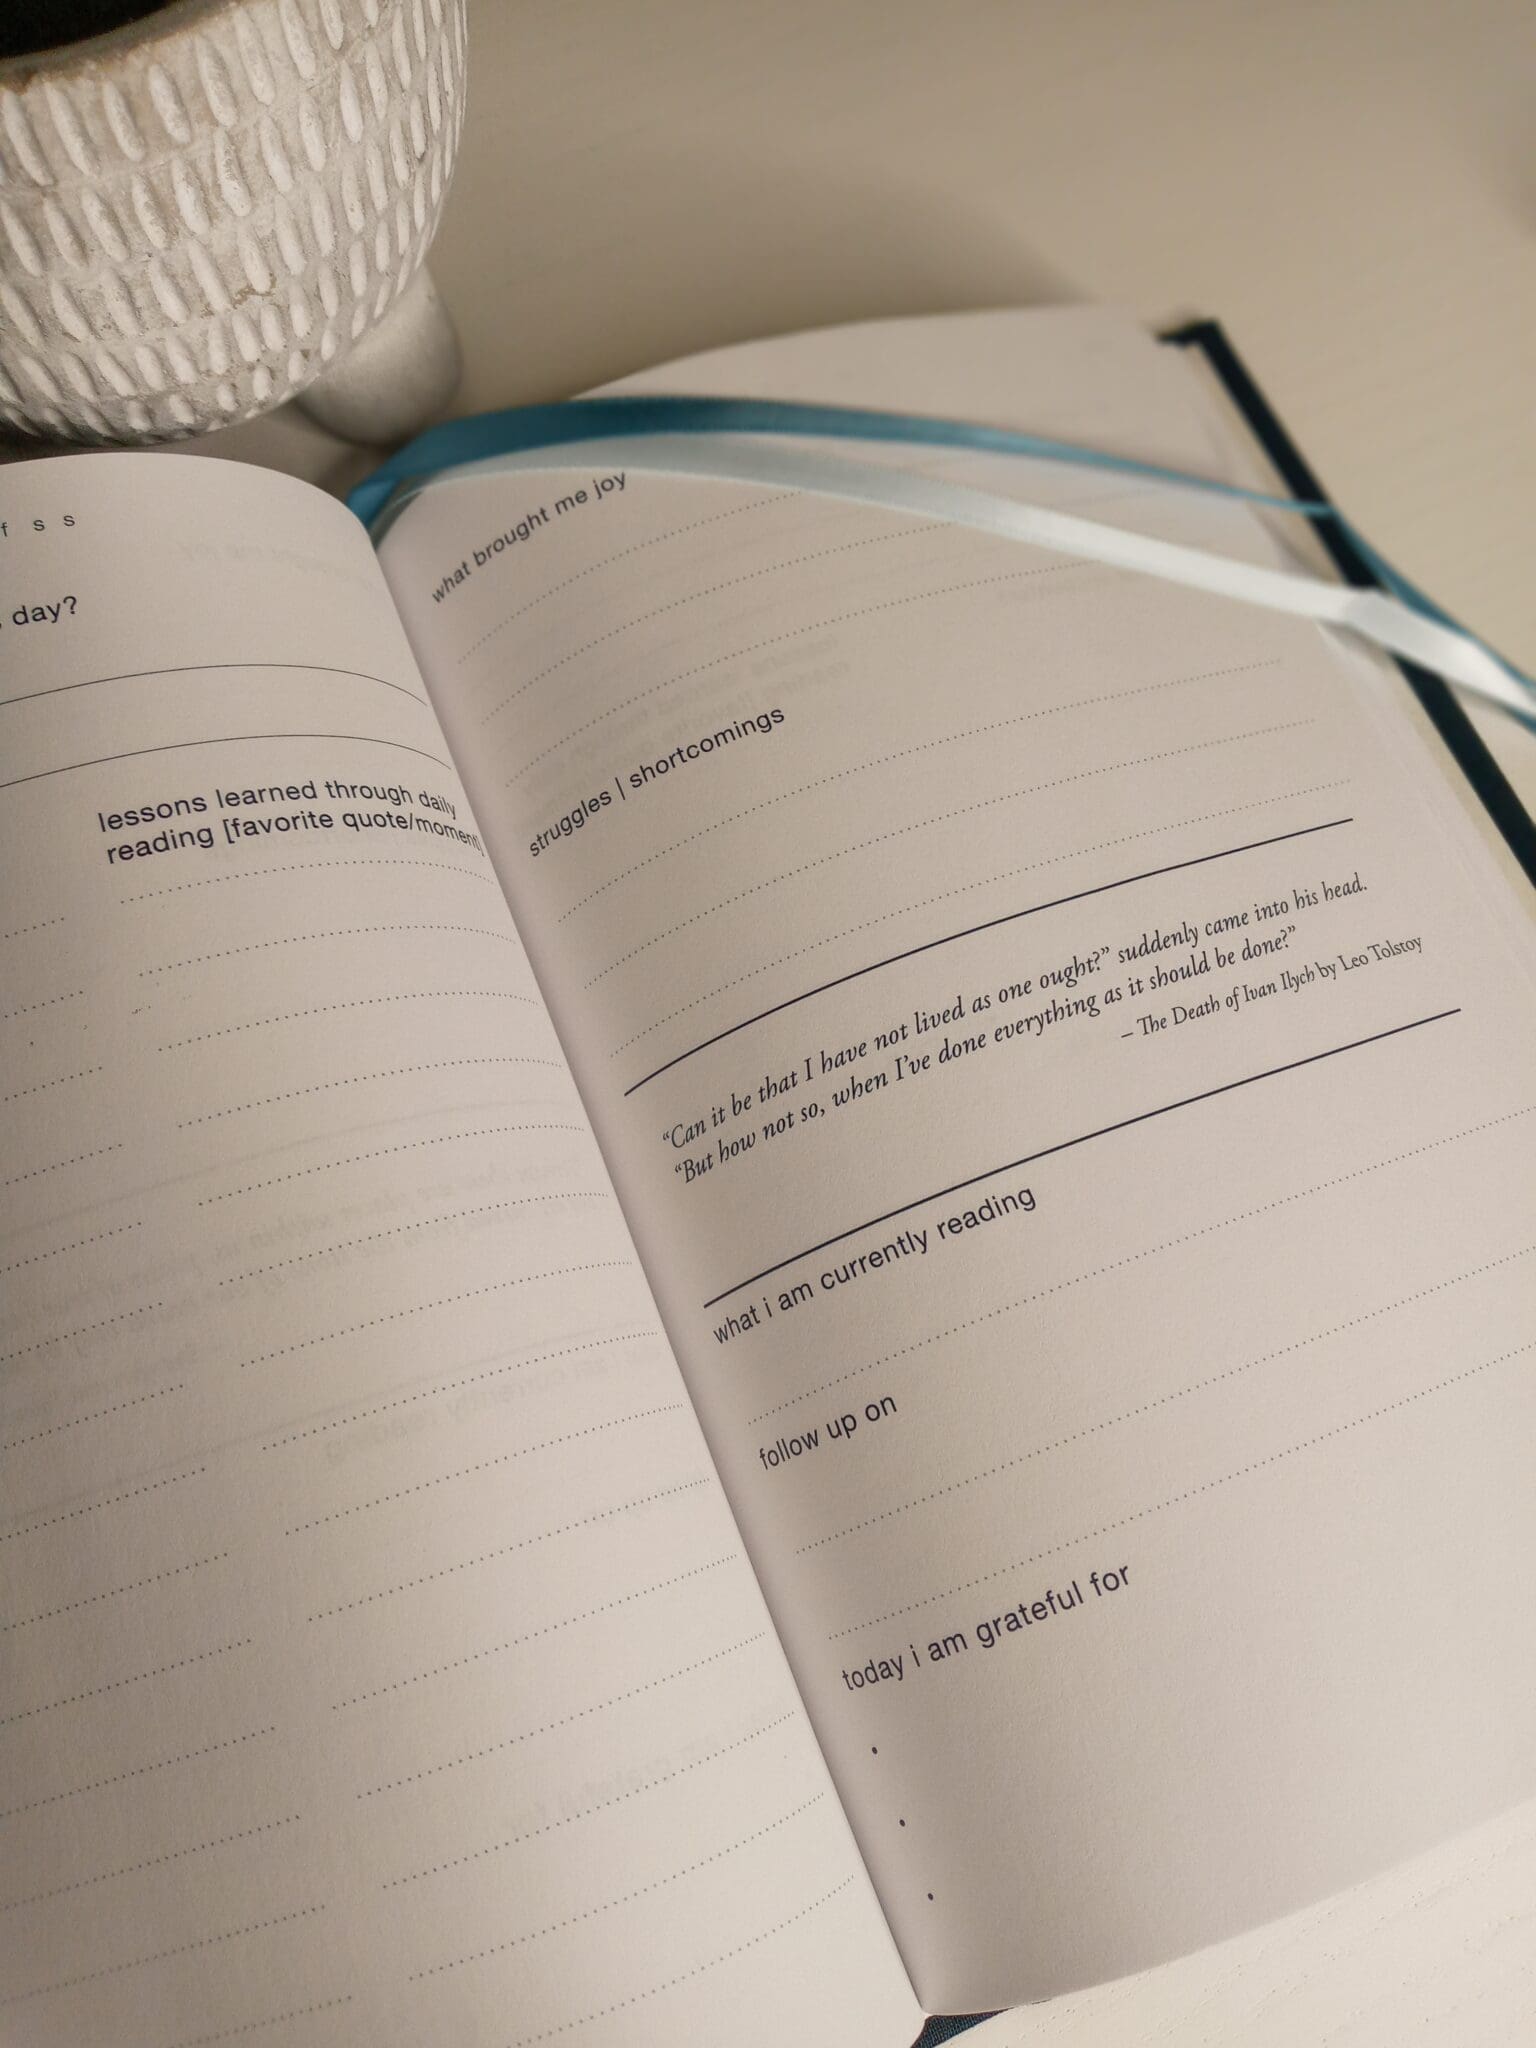 f s s
day?
lessons learned through daily
reading [favorite quote/moment]
what brought me joy
struggles | shortcomings
“Can it be that I have not lived as one ought?” suddenly came into his head.
“But how not so, when I’ve done everything as it should be done?”
– The Death of Ivan Ilych by Leo Tolstoy
what i am currently reading
follow up on
today i am grateful for